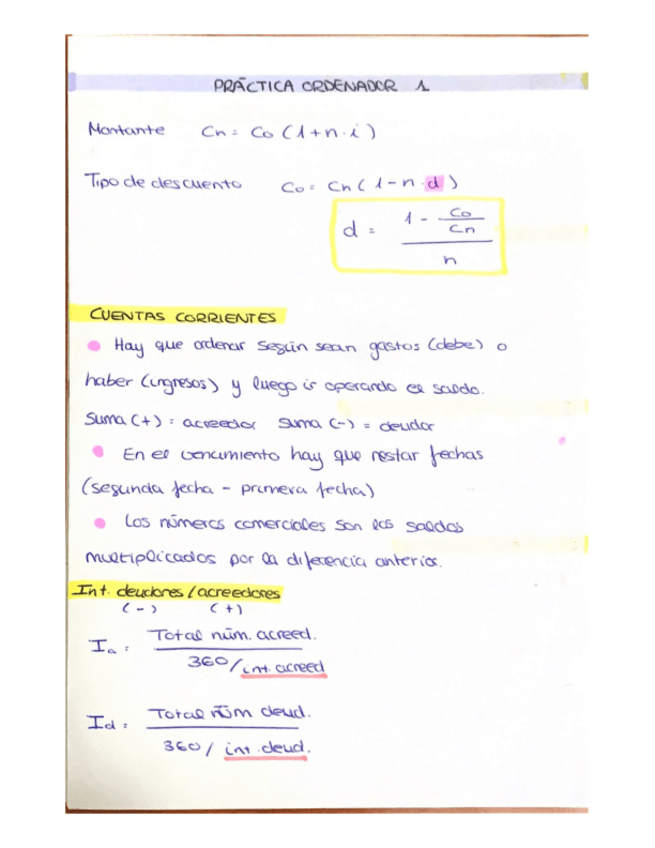 PRÁCTICA ORDENADOR 1
Montante Cn = Co (1+n·i)
Tipo de descuento Co = Cn (1-n·d)
d = (1 - Co/Cn) / n
CUENTAS CORRIENTES
• Hay que ordenar según sean gastos (debe) o
haber (ingresos) y luego ir operando el saldo.
Suma (+) = acreedor Suma (-) = deudor
• En el vencimiento hay que restar fechas
(segunda fecha - primera fecha)
• Los números comerciales son los saldos
multiplicados por la diferencia anterior.
Int. deudores / acreedores
(-) (+)
Ia = Total núm. acreed.
360/int. acreed
Id = Total núm deud.
360/ int. deud.